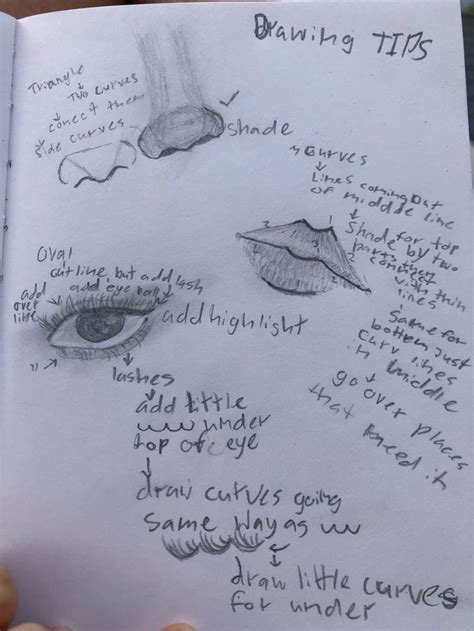 Drawing TIPS
Triangle
Two curves
conect them
side curves
shade
curves
Lines coming out
of middle line
Shade by two
for top
parts then
connect
with thin
lines
Same for
bottom just
curv lines
in middle
go over places
that need it
1
2
Oval
cut line but add lash
add eye ball
add
over
line
add highlight
lashes
add little
uuu under
top of eye
draw curves going
same way as uu
draw little curves
for under